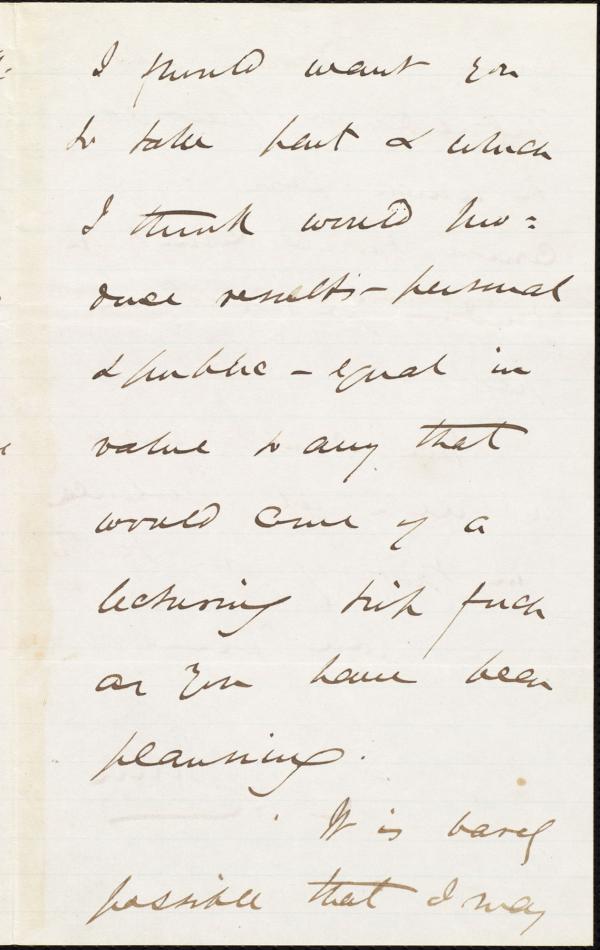 I should want you
to take part & which
I think would pro=
duce results – personal
& public – equal in
value to any that
would come of a
lecturing trip such
as you have been
planning.
It is barely
possible that I may